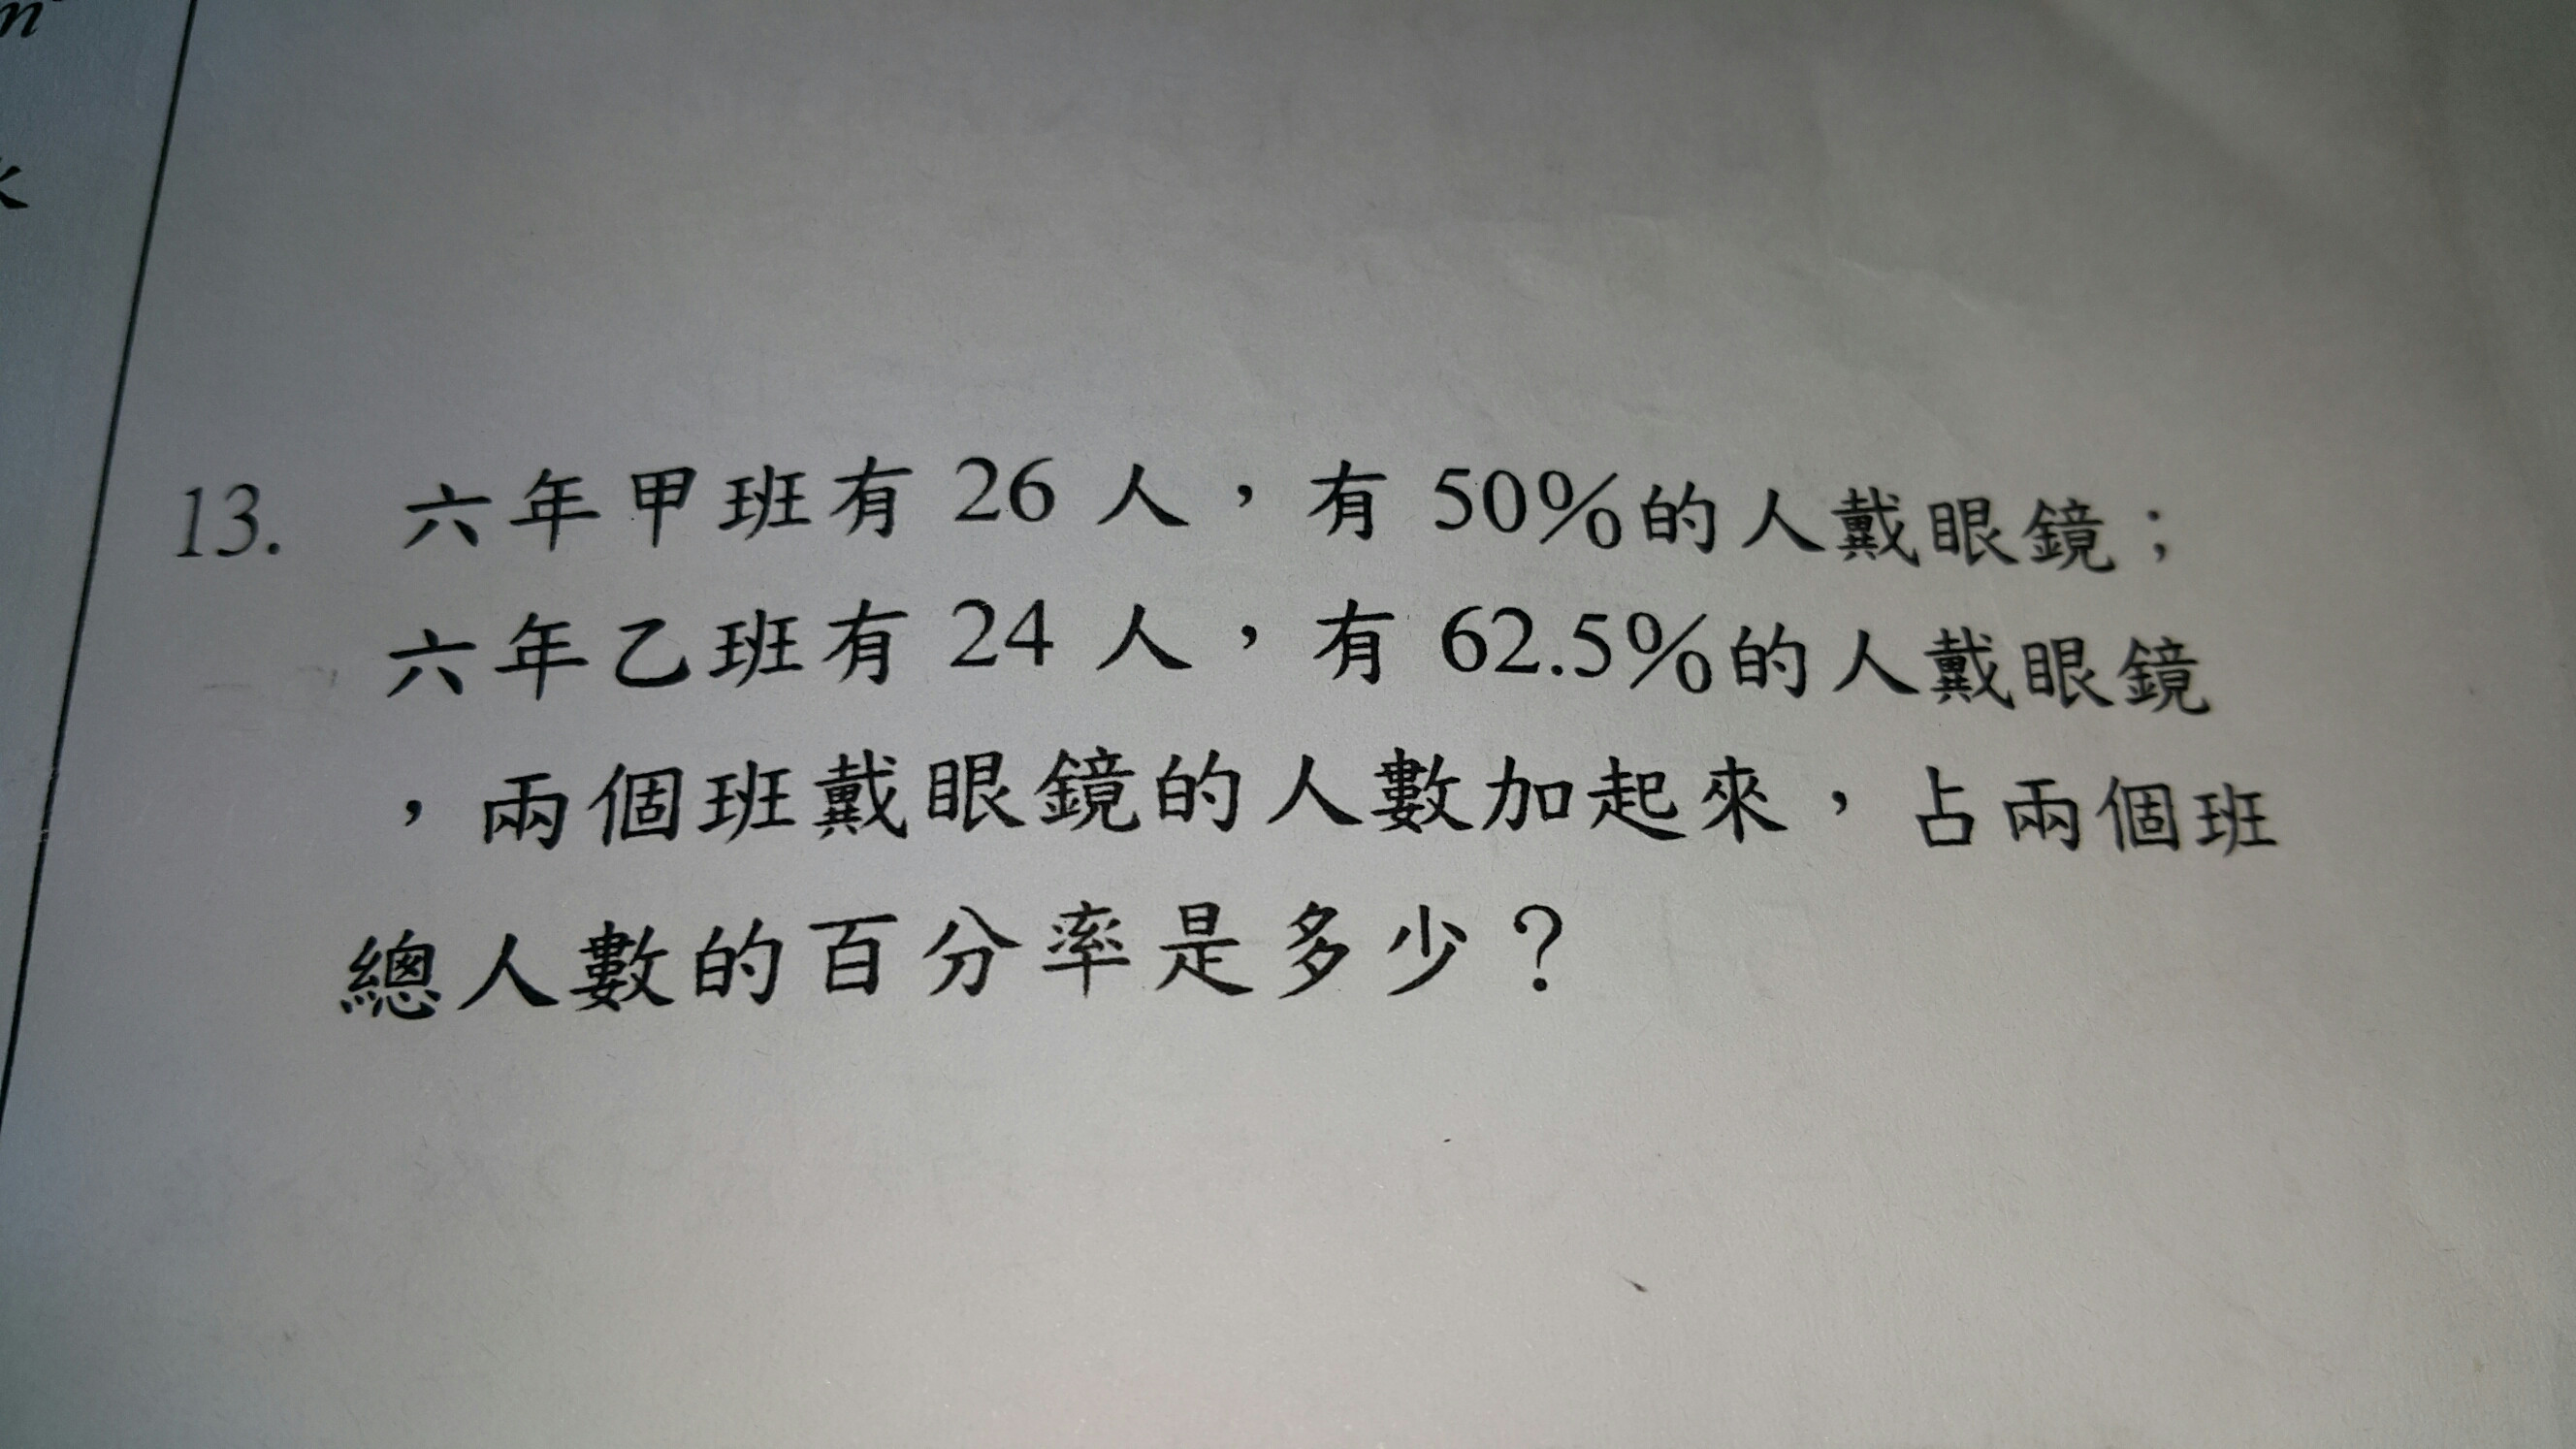 13. 六年甲班有 26 人，有 50%的人戴眼鏡；
六年乙班有 24 人，有 62.5%的人戴眼鏡
，兩個班戴眼鏡的人數加起來，占兩個班
總人數的百分率是多少？